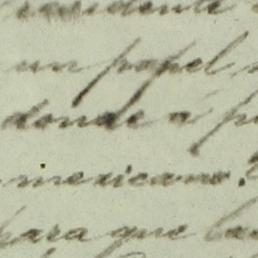 residente
un papel
donde a
mexicano.
para que